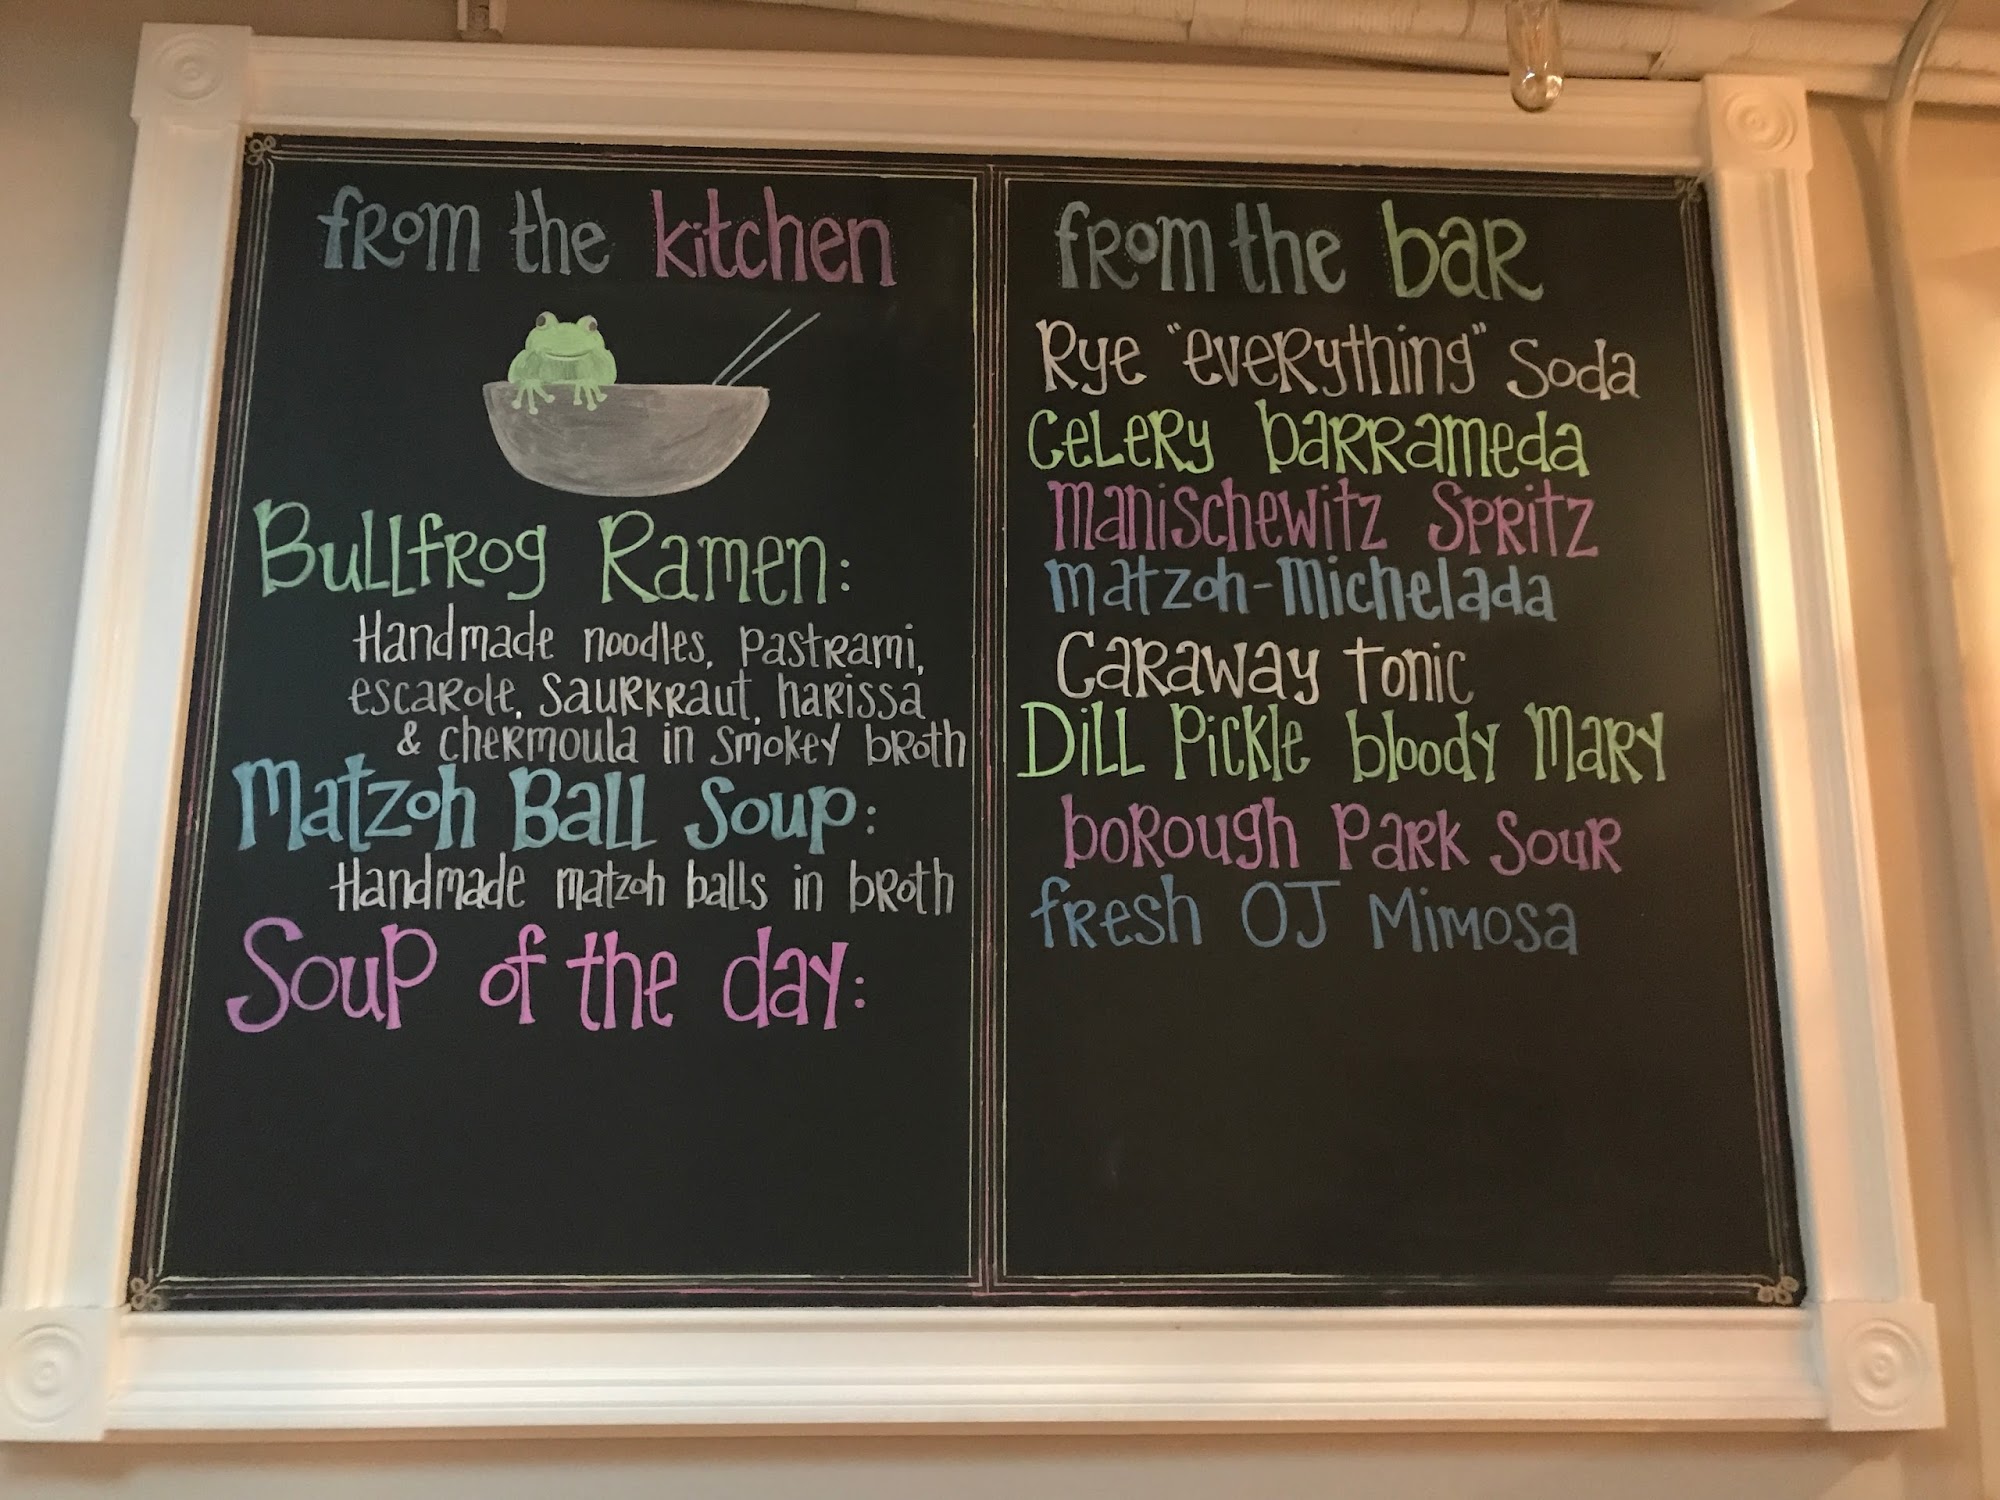 from the kitchen
Bullfrog Ramen:
Handmade noodles, pastrami,
escarole, saurkraut, harissa
& chermoula in smokey broth
Matzoh Ball Soup:
Handmade matzoh balls in broth
Soup of the day:
from the bar
Rye "everything" Soda
Celery barrameda
Manischewitz Spritz
Matzoh-Michelada
Caraway tonic
Dill Pickle bloody Mary
borough Park Sour
fresh OJ Mimosa